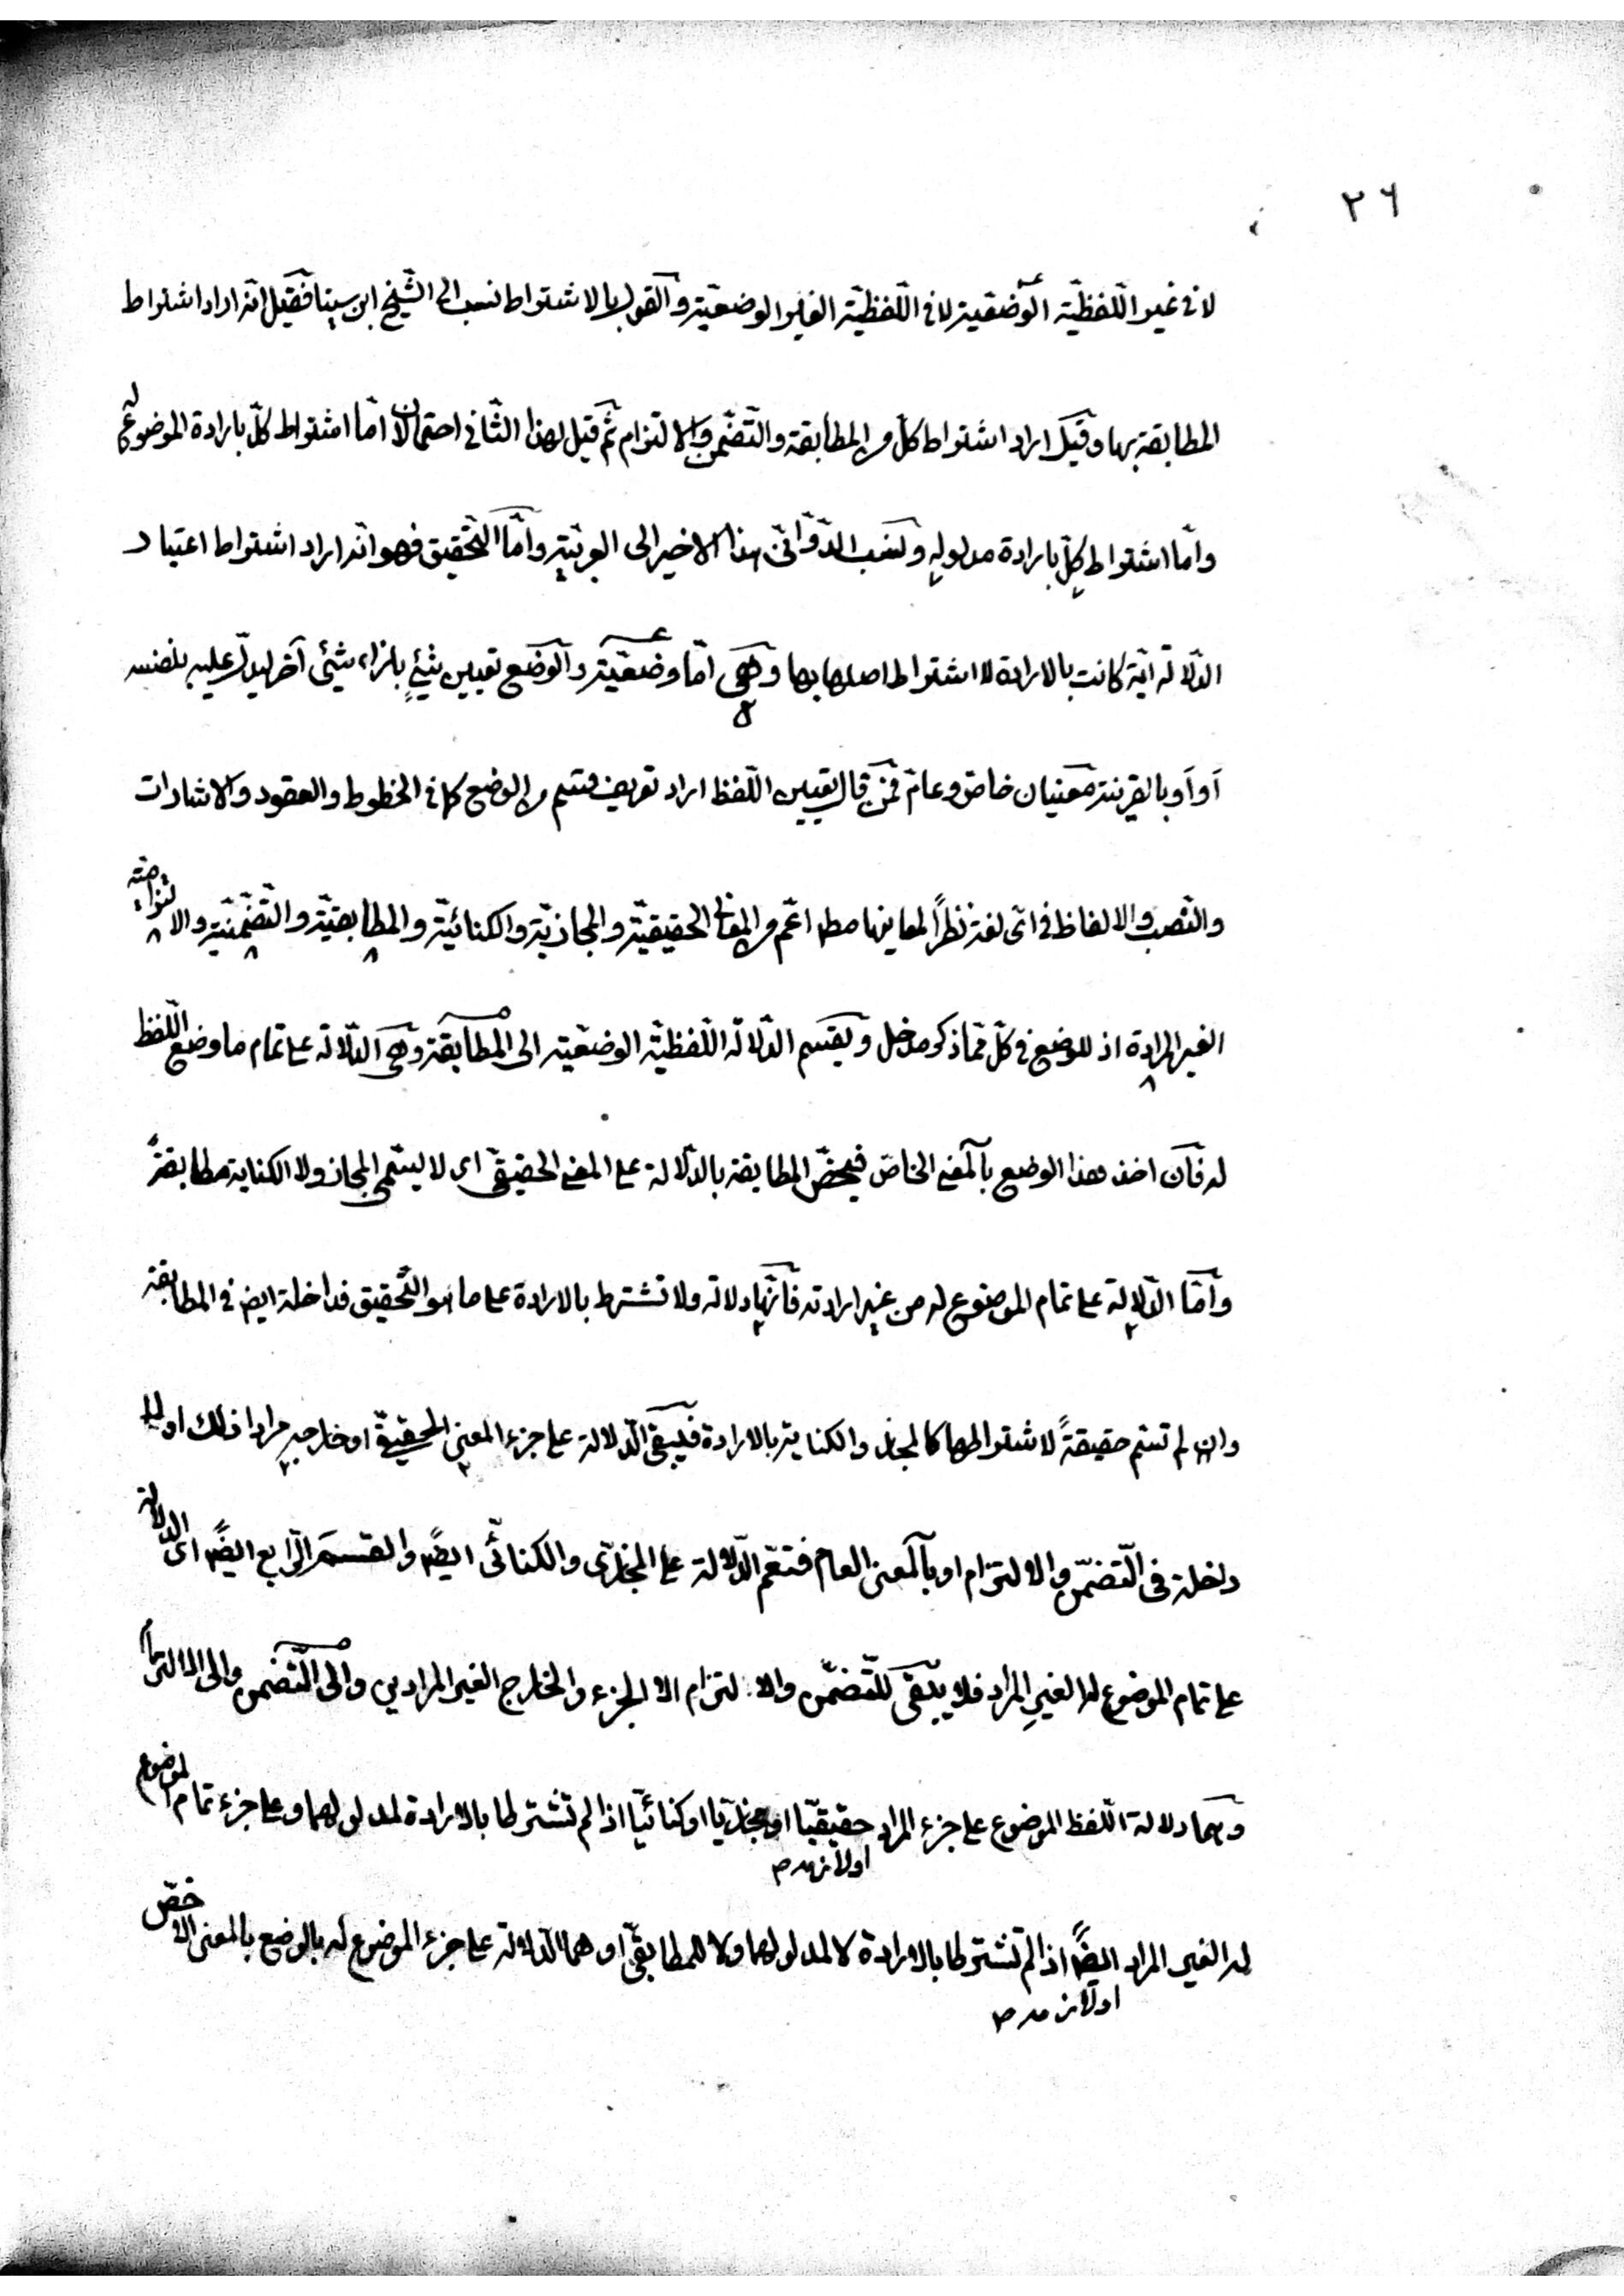 ٢٦
لا في غير اللّفظيّة الوضعيّة لا في اللّفظيّة الغير الوضعيّة والقول بالاشتراط نسب الى الشّيخ ابن سينا فقيل انّه اراد اشتراط
المطابقة بها وقيل اراد اشتراط كلّ من المطابقة والتّضمّن والالتزام ثمّ قيل لهذا الثّاني احتمالان امّا اشتراط كلّ بارادة الموضوع له
وامّا اشتراط كلّ بارادة مدلوليه ونسب الدّوّانيّ هذا الاخير الى العربيّة وامّا التّحقيق فهو انّه اراد اشتراط اعتبار
الدّلالة ايّة كانت بالارادة لا اشتراط اصلها بها وهي امّا وضعيّة والوضع تعيين شيئ بازاء شيئ آخر ليدلّ عليه بنفسه
او او بالقرينة معنيان خاصّ وعامّ فمن قال بتعيين اللّفظ اراد تعريف قسم من الوضع كما في الخطوط والعقود والاشارات
والنّصب والالفاظ في ايّ لغة نظراً لمعاينها مط اعمّ من المعاني الحقيقيّة والمجازيّة والكنائيّة والمطابقيّة والتّضمّنيّة والالتزاميّة
الغير المرادة اذ للوضع في كلّ ممّا ذكر مدخل وينقسم الدّلالة اللّفظيّة الوضعيّة الى المطابقة وهي الدّلالة على تمام ما وضع اللّفظ
له فان اخذ هذا الوضع بالمعنى الخاصّ فيختصّ المطابقة بالدّلالة على المعنى الحقيقيّ اى لا يسمّى المجاز ولا الكناية مطابقةً
وامّا الدّلالة على تمام الموضوع له من غير ارادته فانّها دلالة ولا تشترط بالارادة على ما هو التّحقيق فداخلة ايض في المطابقة
وان لم تسمّ حقيقةً لاشتراطها كالمجاز والكناية بالارادة فيبقى الدّلالة على جزء المعنى الحقيقيّ او خارجه مرادا ذلك او لا
داخلة في التّضمّن والالتزام او بالمعنى العام فتعمّ الدّلالة على المجازيّ والكنائيّ ايضً والقسم الرّابع ايضً اى الدلالة
على تمام الموضوع له الغير المراد فلا يبقى للتّضمّن والالتزام الا الجزء والخارج الغير المرادين والى التّضمن والى الالتزام
وهما دلالة اللّفظ الموضوع على جزء المراد حقيقيّا او مجازيّا او كنائيّا اذا لم تشترطا بالارادة لمدلولهما وعلى جزء تمام الموضوع
او لازمه م
له الغير المراد ايضًا اذا لم تشترطا بالارادة لا لمدلولهما ولا للمطابقيّ او هما الدّلالة على جزء الموضوع له بالوضع بالمعنى الاخصّ
او لازمه م